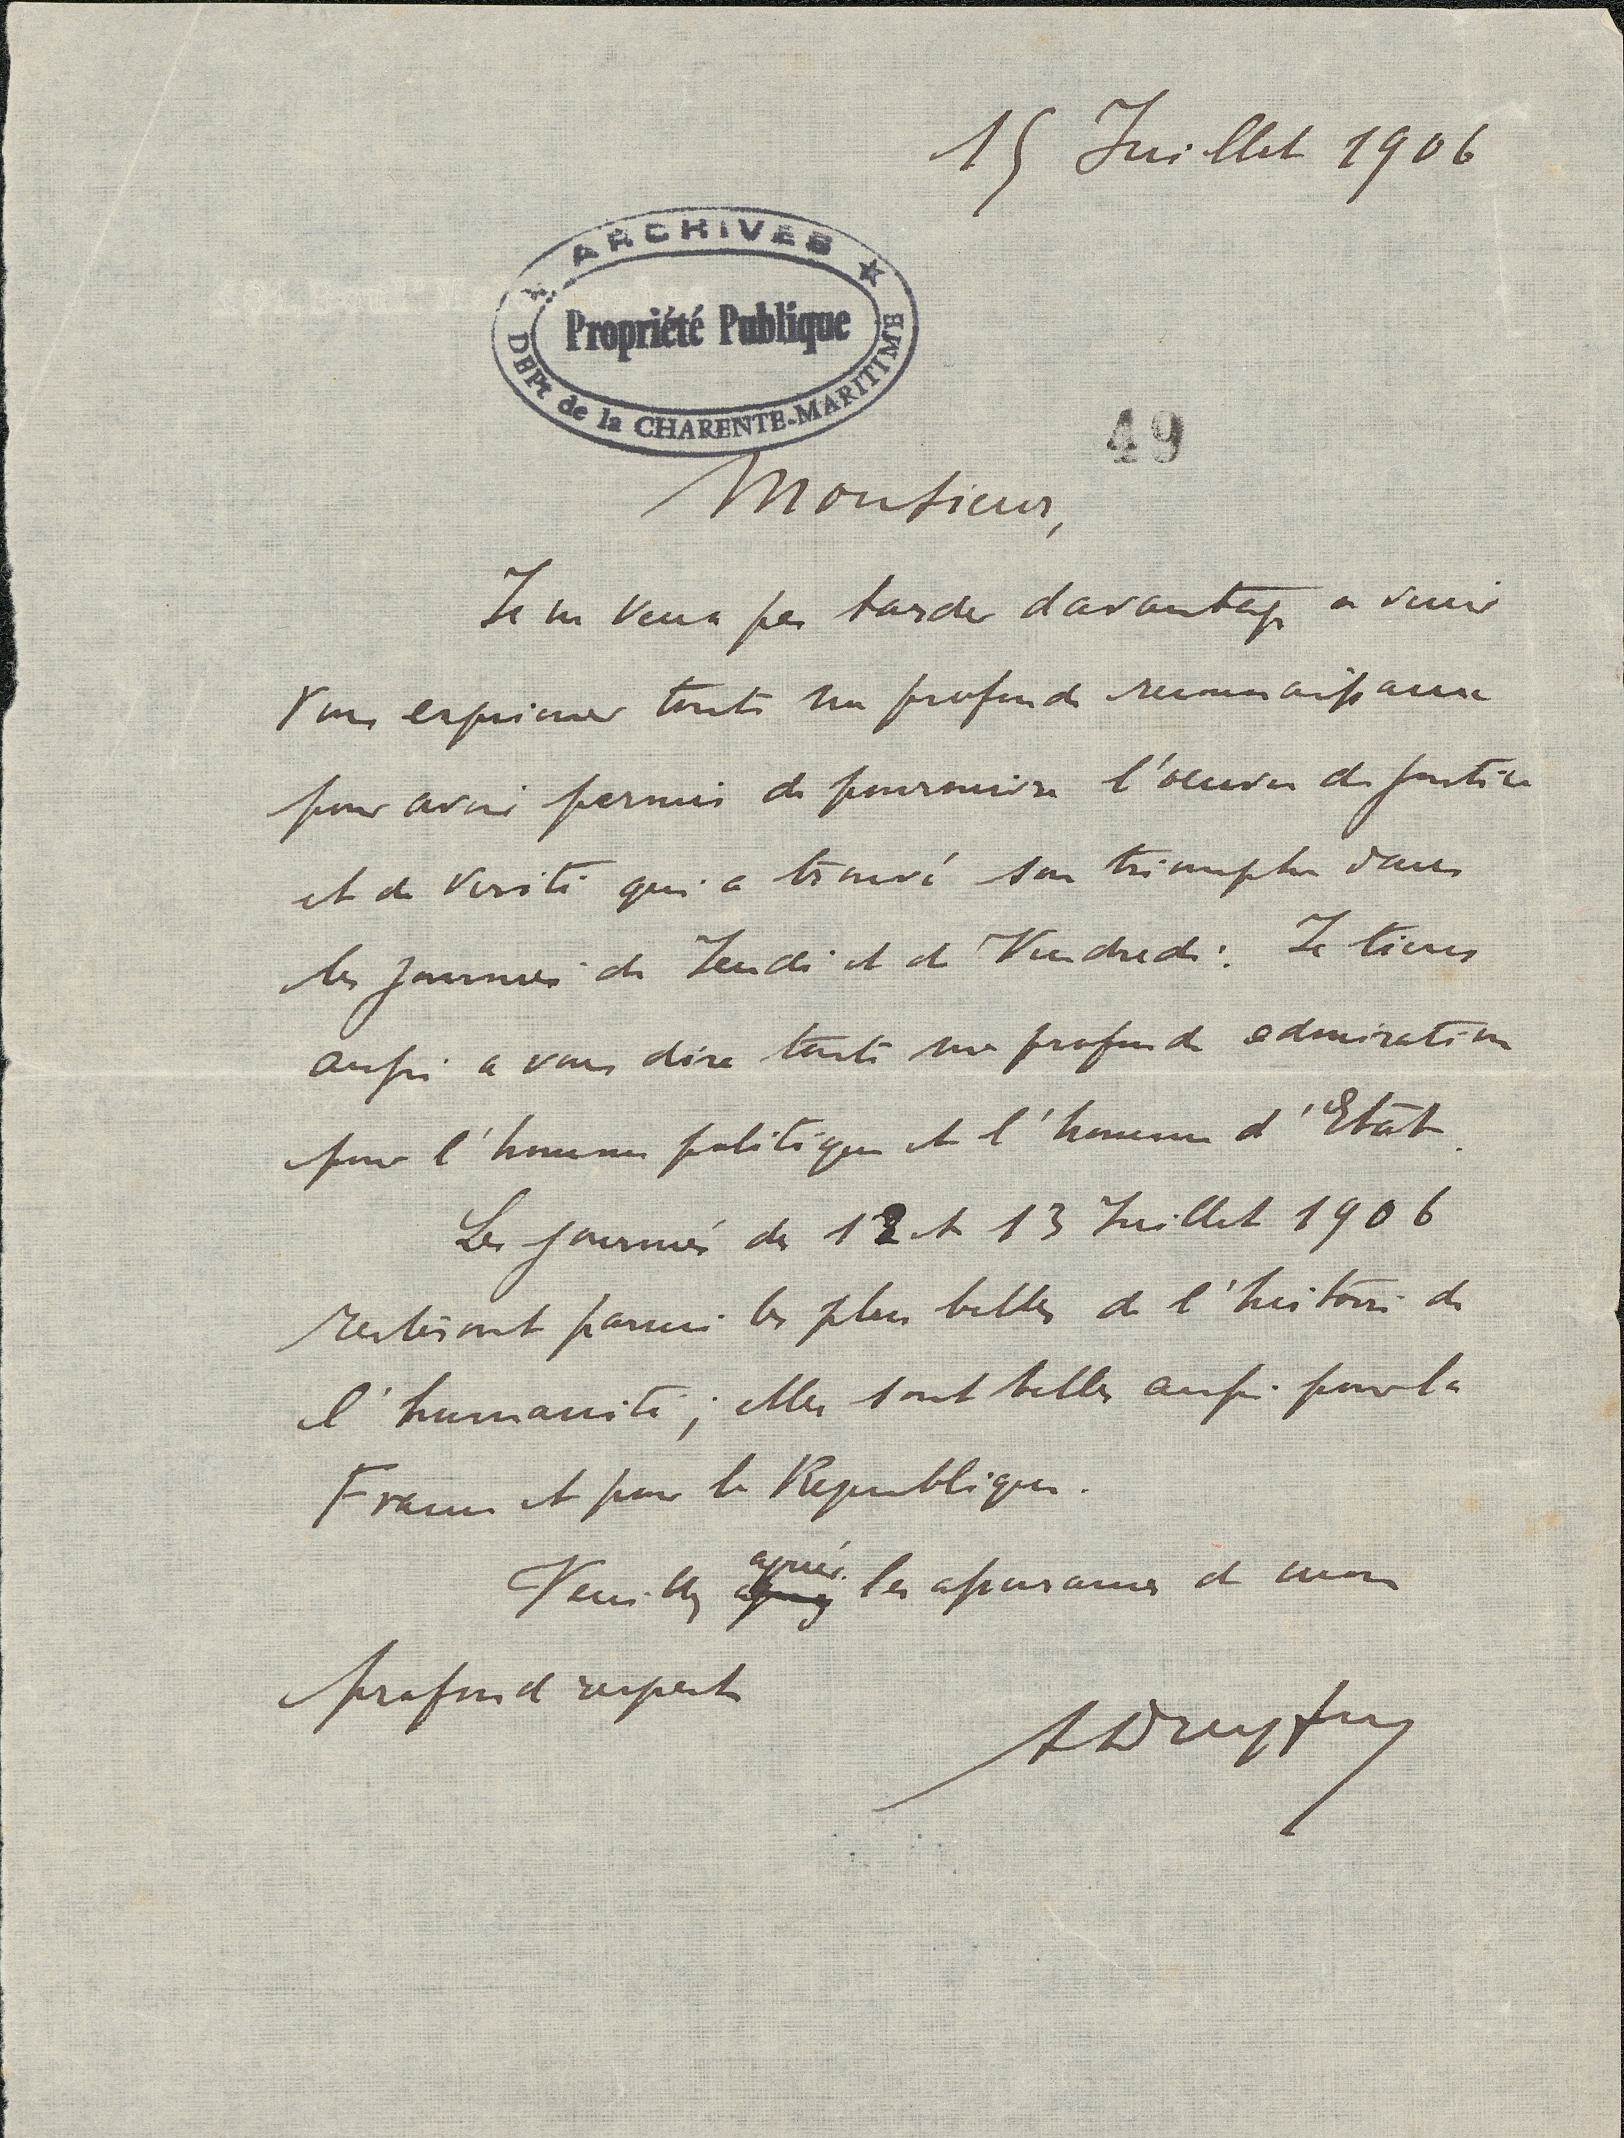 15 Juillet 1906
ARCHIVES
Propriété Publique
DEPt de la CHARENTE-MARITIME
49
Monsieur,
Je ne veux pas tarder davantage a venir
vous exprimer toute ma profonde reconnaissance
pour avoir permis de poursuivre l'oeuvre de justice
et de verité qui a trouvé son triomphe dans
les journées de Jeudi et de Vendredi. Je tiens
aussi a vous dire toute ma profonde admiration
pour l'homme politique et l'homme d'Etat.
Les journées des 12 et 13 Juillet 1906
resteront parmi les plus belles de l'histoire de
l'humanité ; elles sont belles aussi pour la
France et pour la Republique.
Veuillez agréer les assurances de mon
profond respect
A Dreyfus